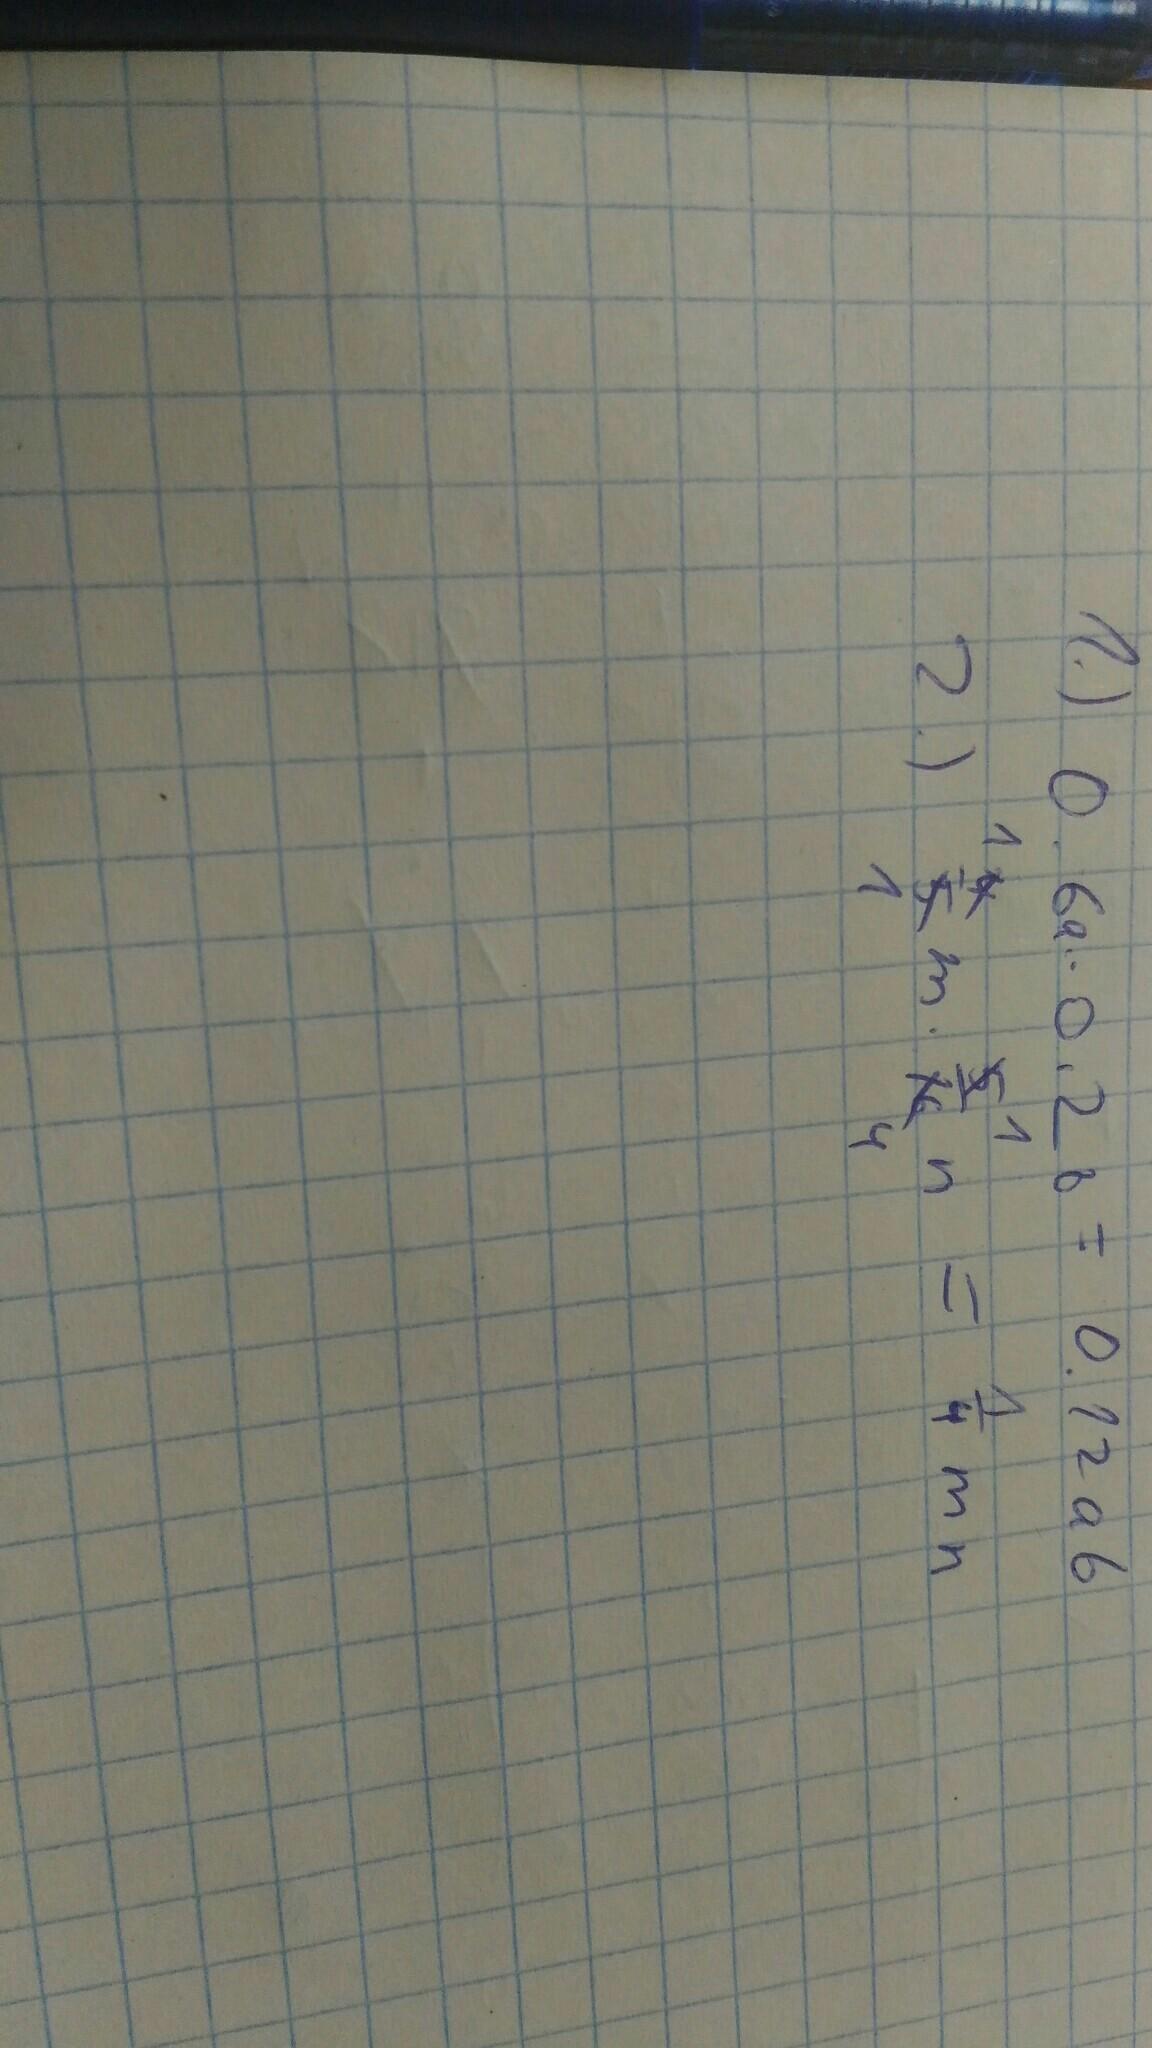 1.) 0.6a·0.2b = 0.12ab
2.) 4/5 m · 5/16 n = 1/4 mn